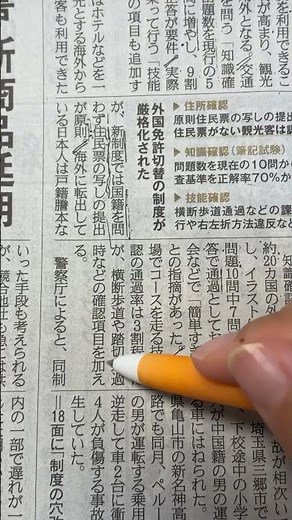 外国免許切替の制度が
厳格化された
▶住所確認
原則住民票の写しの提出
住民票がない観光客は認
▶知識確認(筆記試験)
問題数を現行の10問から
査基準を正解率70%か
▶技能確認
横断歩道通過などの課
行や右左折方法違反など
を利用できるこ
が高まり、観光
外となる。交通
を問う「知識確
題数を現行の5
に増やし、9割
答が要件。実際
って行う「技能
の項目も追加す
はホテルなどを一
光とする海外から
客も利用できた
が、新制度では国籍を問
わず住民票の写しの提出
が原則。海外に転出して
いる日本人は戸籍謄本な
知識確認
約20カ国の外
し、イラスト
問題10問中7問
答で通過として
会などで「簡単す
との指摘があった。
場でコースを走る技
認の通過率は3割程
が、横断歩道や踏切
時などの確認項目を加え
警察庁によると、同制
いった手段も考えられる
故が相次い
埼玉県三郷市で
下校途中の小学
が中国籍の男の運
る車にはねられた。
県亀山市の新名神高
路でも同月、ペルー
の男が運転する乗用
逆走して車2台に衝
4人が負傷する事故
生していた。
=18面に「制度の穴
内の一部で遅れが